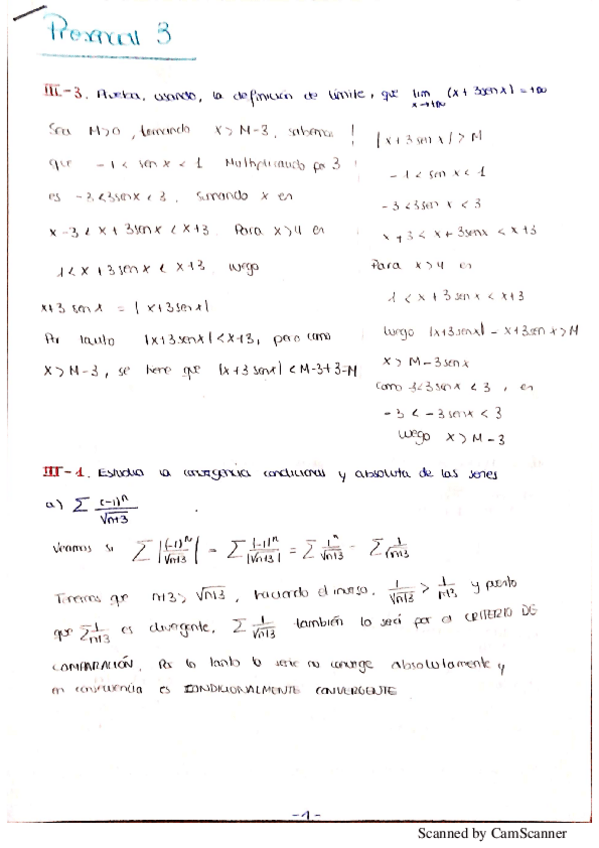 Prexamal 3
III-3. Prueba, usando, la definición de límite, que lim (x + 3senx) = +∞
x→+∞
Sea M>0, tomando x > M-3, sabemos
que -1 < sen x < 1 Multiplicando por 3
es -3<3senx<3. Sumando x en
x-3 < x + 3senx < x+3. Para x>4 en
1 < x + 3 senx < x+3 luego
x+3 senx = |x+3senx|
Por tanto |x+3senx| < x+3, pero como
x > M-3, se tiene que |x+3senx| < M-3+3=M
|x+3 senx| > M
-1 < senx < 1
-3 <3senx < 3
x+3 < x+3senx < x+3
Para x>4 en
1 < x + 3senx < x+3
luego |x+3senx| = x+3senx > M
x > M-3senx
como 3<3senx < 3, en
-3 < -3senx < 3
luego x > M-3
III-1. Estudia la convergencia condicional y absoluta de las series
a) Σ (-1)ⁿ/√n+3
Veamos si Σ |(-1)ⁿ/√n+3| = Σ |-1|ⁿ/|√n+3| = Σ 1ⁿ/√n+3 = Σ 1/√n+3
Tenemos que n+3 > √n+3, haciendo el inverso, 1/√n+3 > 1/n+3 y puesto
que Σ 1/n+3 es divergente, Σ 1/√n+3 también lo será por el CRITERIO DE
COMPARACIÓN. Por lo tanto la serie no converge absolutamente y
en consecuencia es CONDICIONALMENTE CONVERGENTE
-1-
Scanned by CamScanner